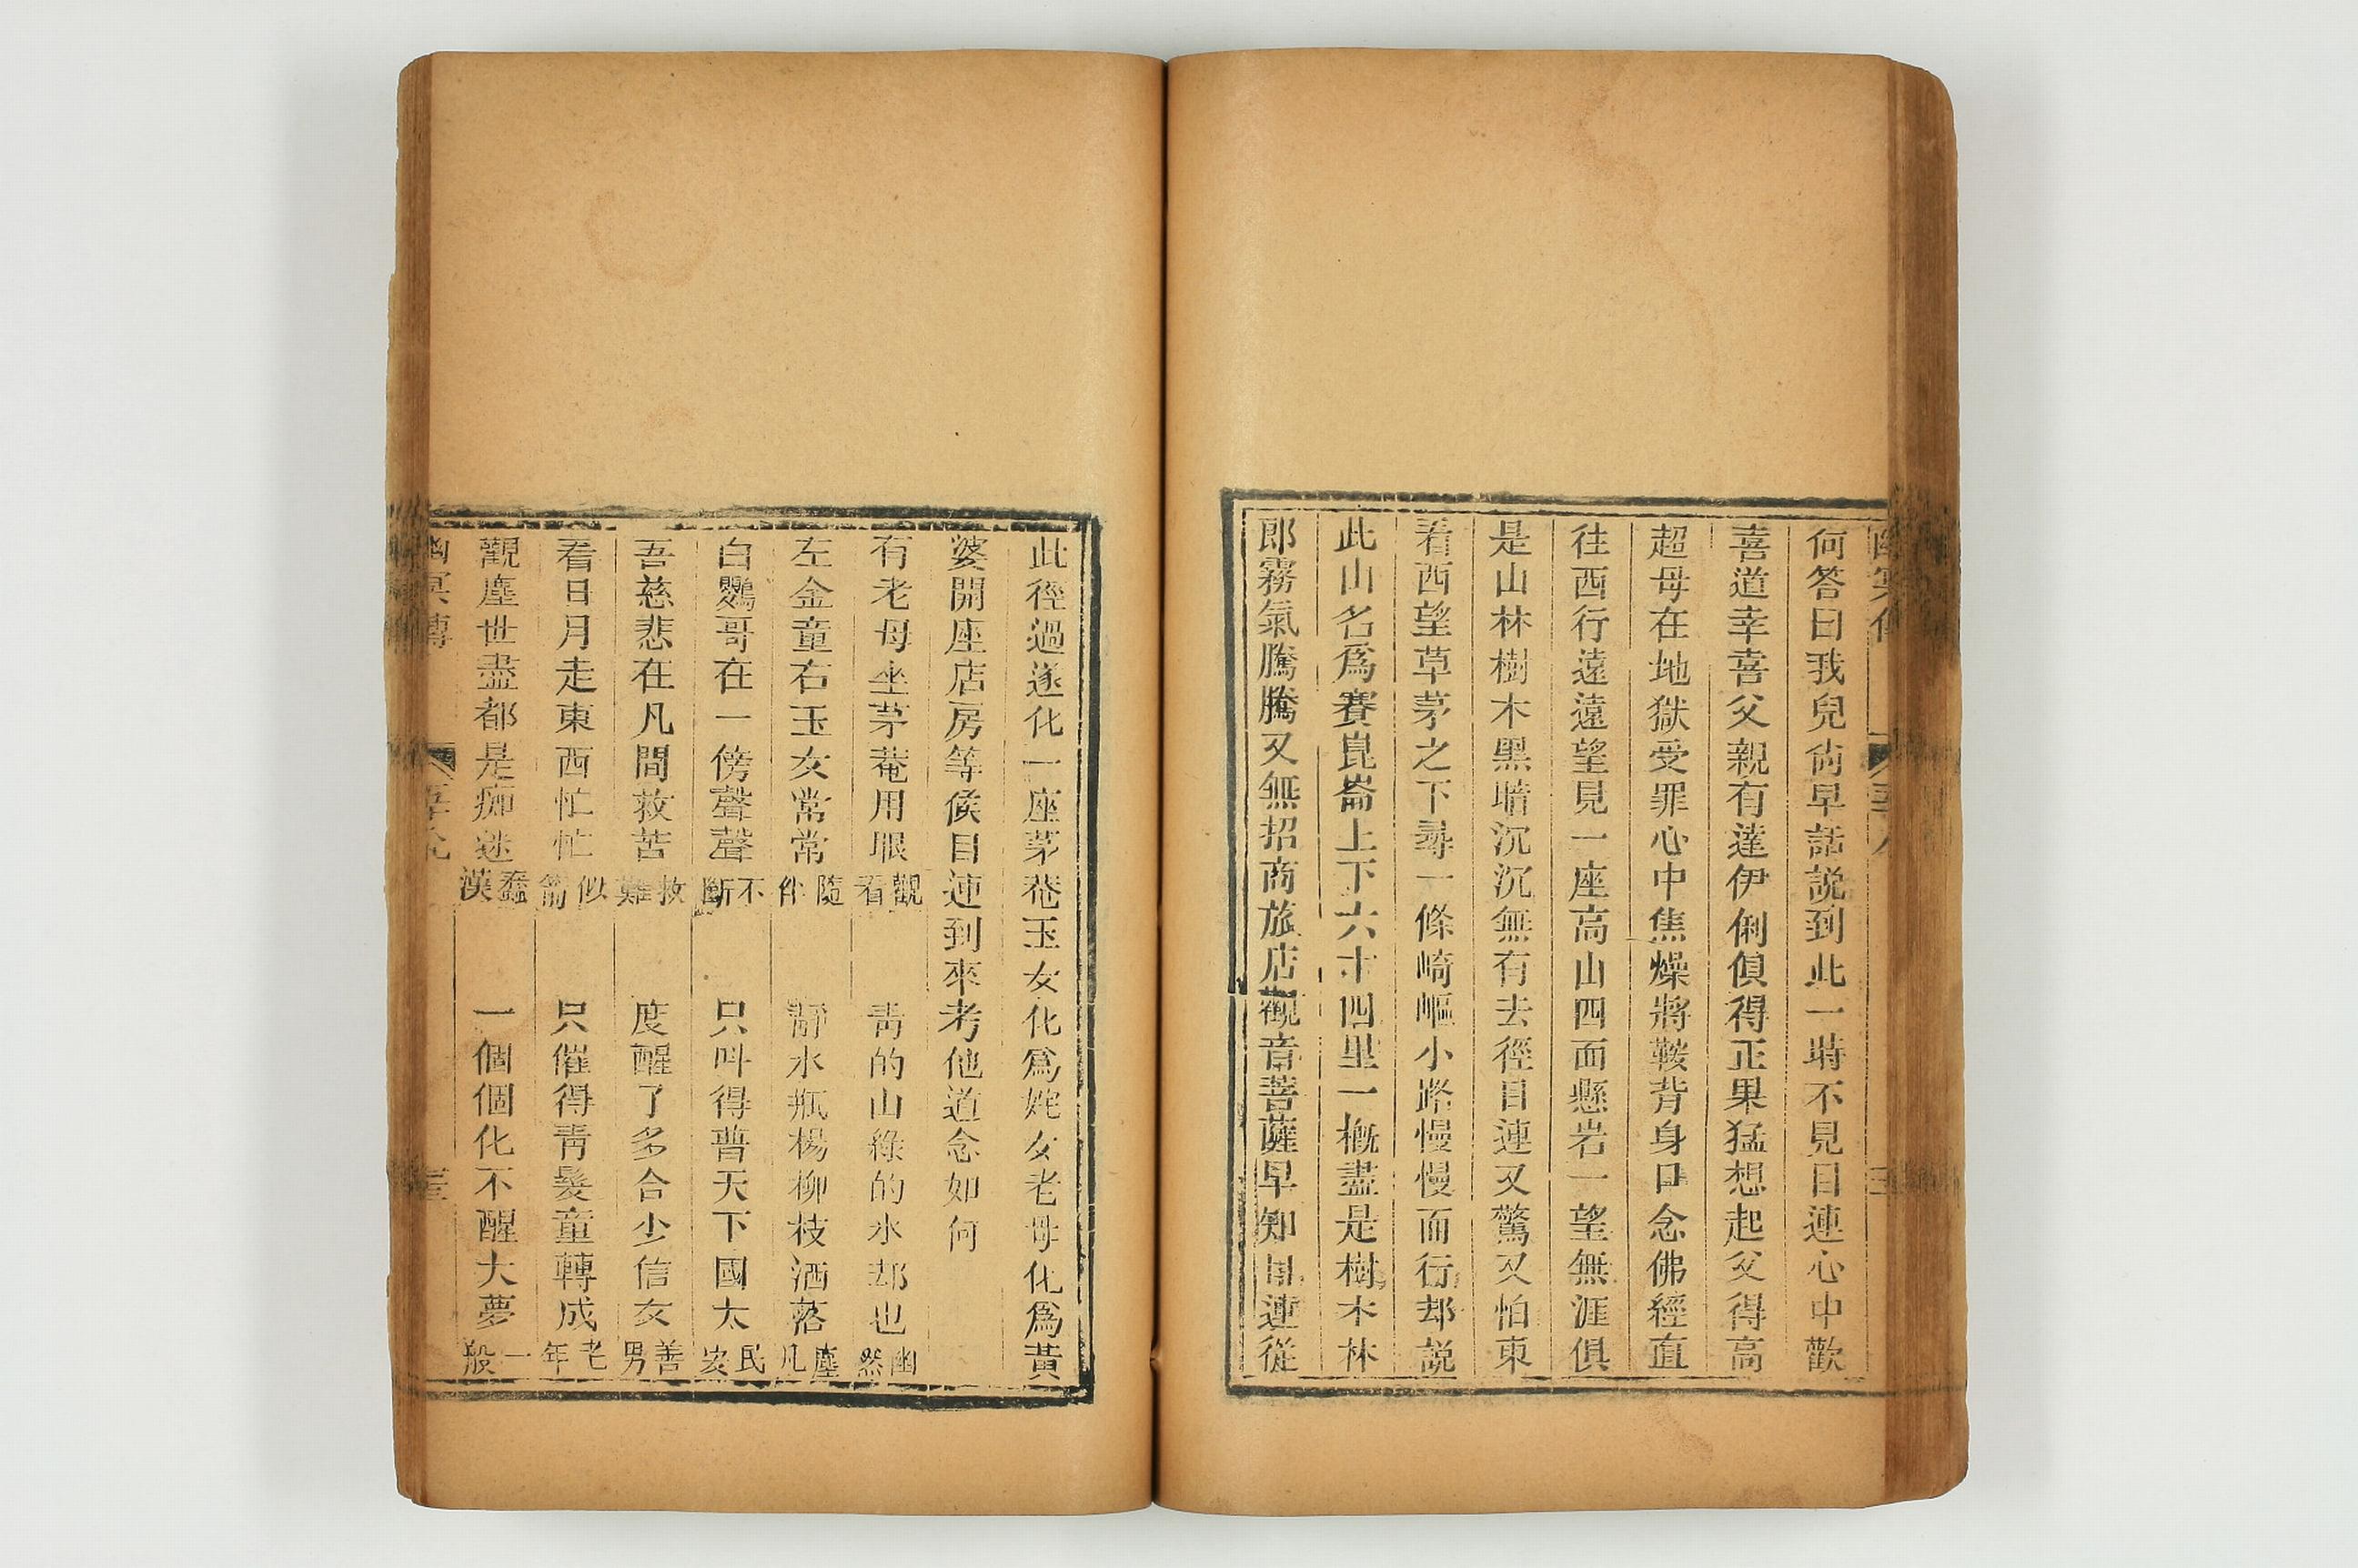 何答曰我兒尙早話説到此一時不見目連心中歡
喜道幸喜父親有達伊俐偵得正果猛想起父得高
超母在地獄受罪心中焦燥將鞍背身口念佛經直
往西行遠遠望見一座高山四面懸岩一望無涯俱
是山林樹木黑暗沉沉無有去徑目連又驚又怕東
看西望草茅之下尋一條崎嶇小路慢慢而行却説
此山名爲賽崑崙上下六十四里一概盡是樹木林
郎霧氣騰騰又無招商旅店觀音菩薩早知目連從
此徑過遂化一座茅菴玉女化爲姹女老母化爲黃
婆開座店房等候目連到來考他道念如何
有老母坐茅菴用眼觀看 靑的山綠的水却也幽然
左金童右玉女常常隨伴 靜水瓶楊柳枝洒落塵凡
白鸚哥在一傍聲聲不斷 只呌得普天下國太民安
吾慈悲在凡間救苦救難 度醒了多合少信女善男
看日月走東西忙忙似箭 只催得靑髮童轉成老年
觀塵世盡都是痴迷蠢漢 一個個化不醒大夢一般
幽冥傳